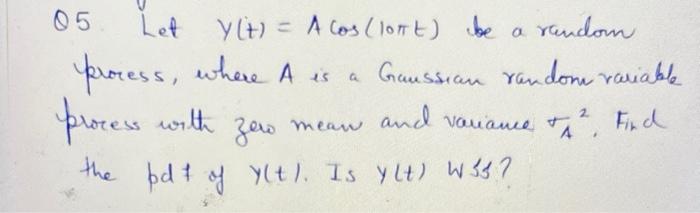 Q5 Let Y(t) = A Cos(10πt) be a random
process, where A is a Gaussian random variable
process with zero mean and variance σ_A². Find
the pdf of Y(t). Is Y(t) WSS?